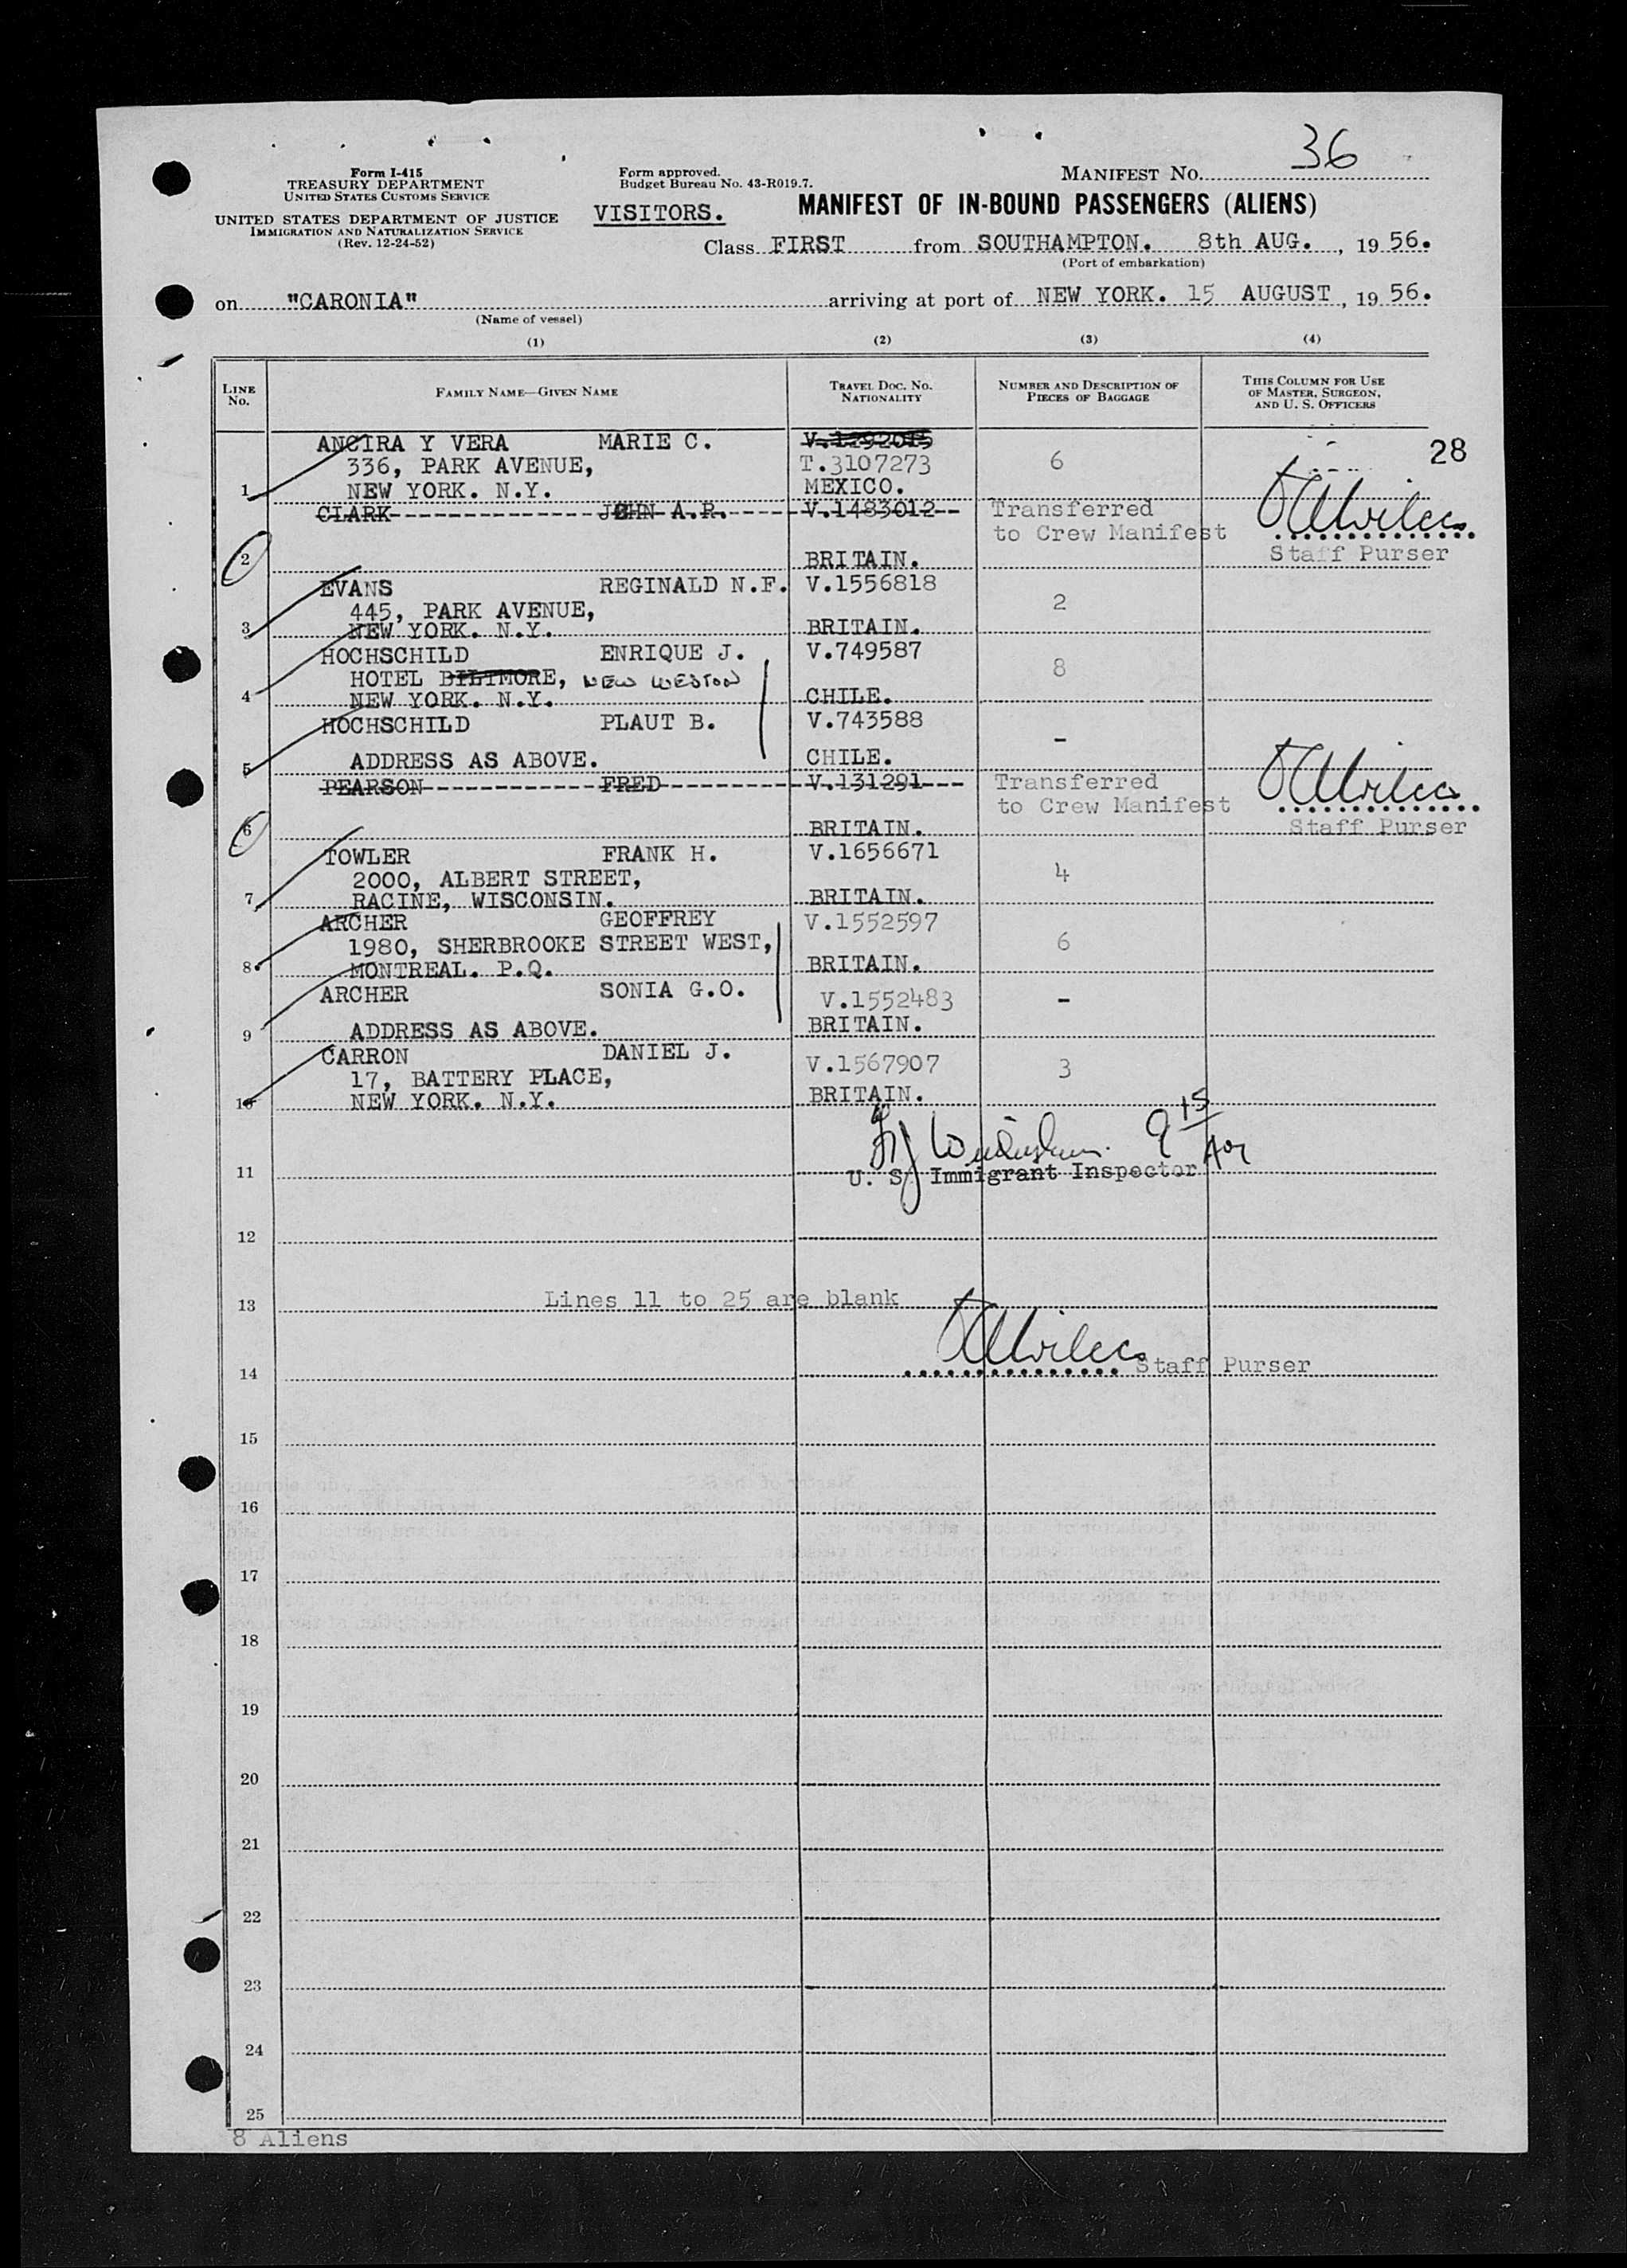 36
Form I-415
TREASURY DEPARTMENT
UNITED STATES CUSTOMS SERVICE
UNITED STATES DEPARTMENT OF JUSTICE
IMMIGRATION AND NATURALIZATION SERVICE
(Rev. 12-24-52)
Form approved.
Budget Bureau No. 43-R019.7.
VISITORS.
MANIFEST NO.
MANIFEST OF IN-BOUND PASSENGERS (ALIENS)
Class FIRST from SOUTHAMPTON. 8th AUG., 19 56.
(Port of embarkation)
on "CARONIA" arriving at port of NEW YORK. 15 AUGUST, 19 56.
(Name of vessel)
(1) (2) (3) (4)
LINE NO. FAMILY NAME—GIVEN NAME TRAVEL DOC. NO. NATIONALITY NUMBER AND DESCRIPTION OF PIECES OF BAGGAGE THIS COLUMN FOR USE OF MASTER, SURGEON, AND U. S. OFFICERS
ANCIRA Y VERA MARIE C. V.1292015 28
336, PARK AVENUE, T.3107273 6
1 NEW YORK. N.Y. MEXICO.
CLARK JOHN A.R. V.1483012 Transferred
to Crew Manifest
2 BRITAIN. Staff Purser
EVANS REGINALD N.F. V.1556818
445, PARK AVENUE, 2
3 NEW YORK. N.Y. BRITAIN.
HOCHSCHILD ENRIQUE J. V.749587
HOTEL BILTMORE, NEW WESTON 8
4 NEW YORK. N.Y. CHILE.
HOCHSCHILD PLAUT B. V.743588
-
5 ADDRESS AS ABOVE. CHILE.
PEARSON FRED V.131291 Transferred
to Crew Manifest
6 BRITAIN. Staff Purser
TOWLER FRANK H. V.1656671
2000, ALBERT STREET, 4
7 RACINE, WISCONSIN. BRITAIN.
ARCHER GEOFFREY V.1552597
1980, SHERBROOKE STREET WEST, 6
8 MONTREAL. P.Q. BRITAIN.
ARCHER SONIA G.O. V.1552483 -
9 ADDRESS AS ABOVE. BRITAIN.
CARRON DANIEL J. V.1567907 3
17, BATTERY PLACE,
10 NEW YORK. N.Y. BRITAIN.
9 15
11 U. S. Immigrant Inspector
12
13 Lines 11 to 25 are blank
14 Staff Purser
15
16
17
18
19
20
21
22
23
24
25
8 Aliens